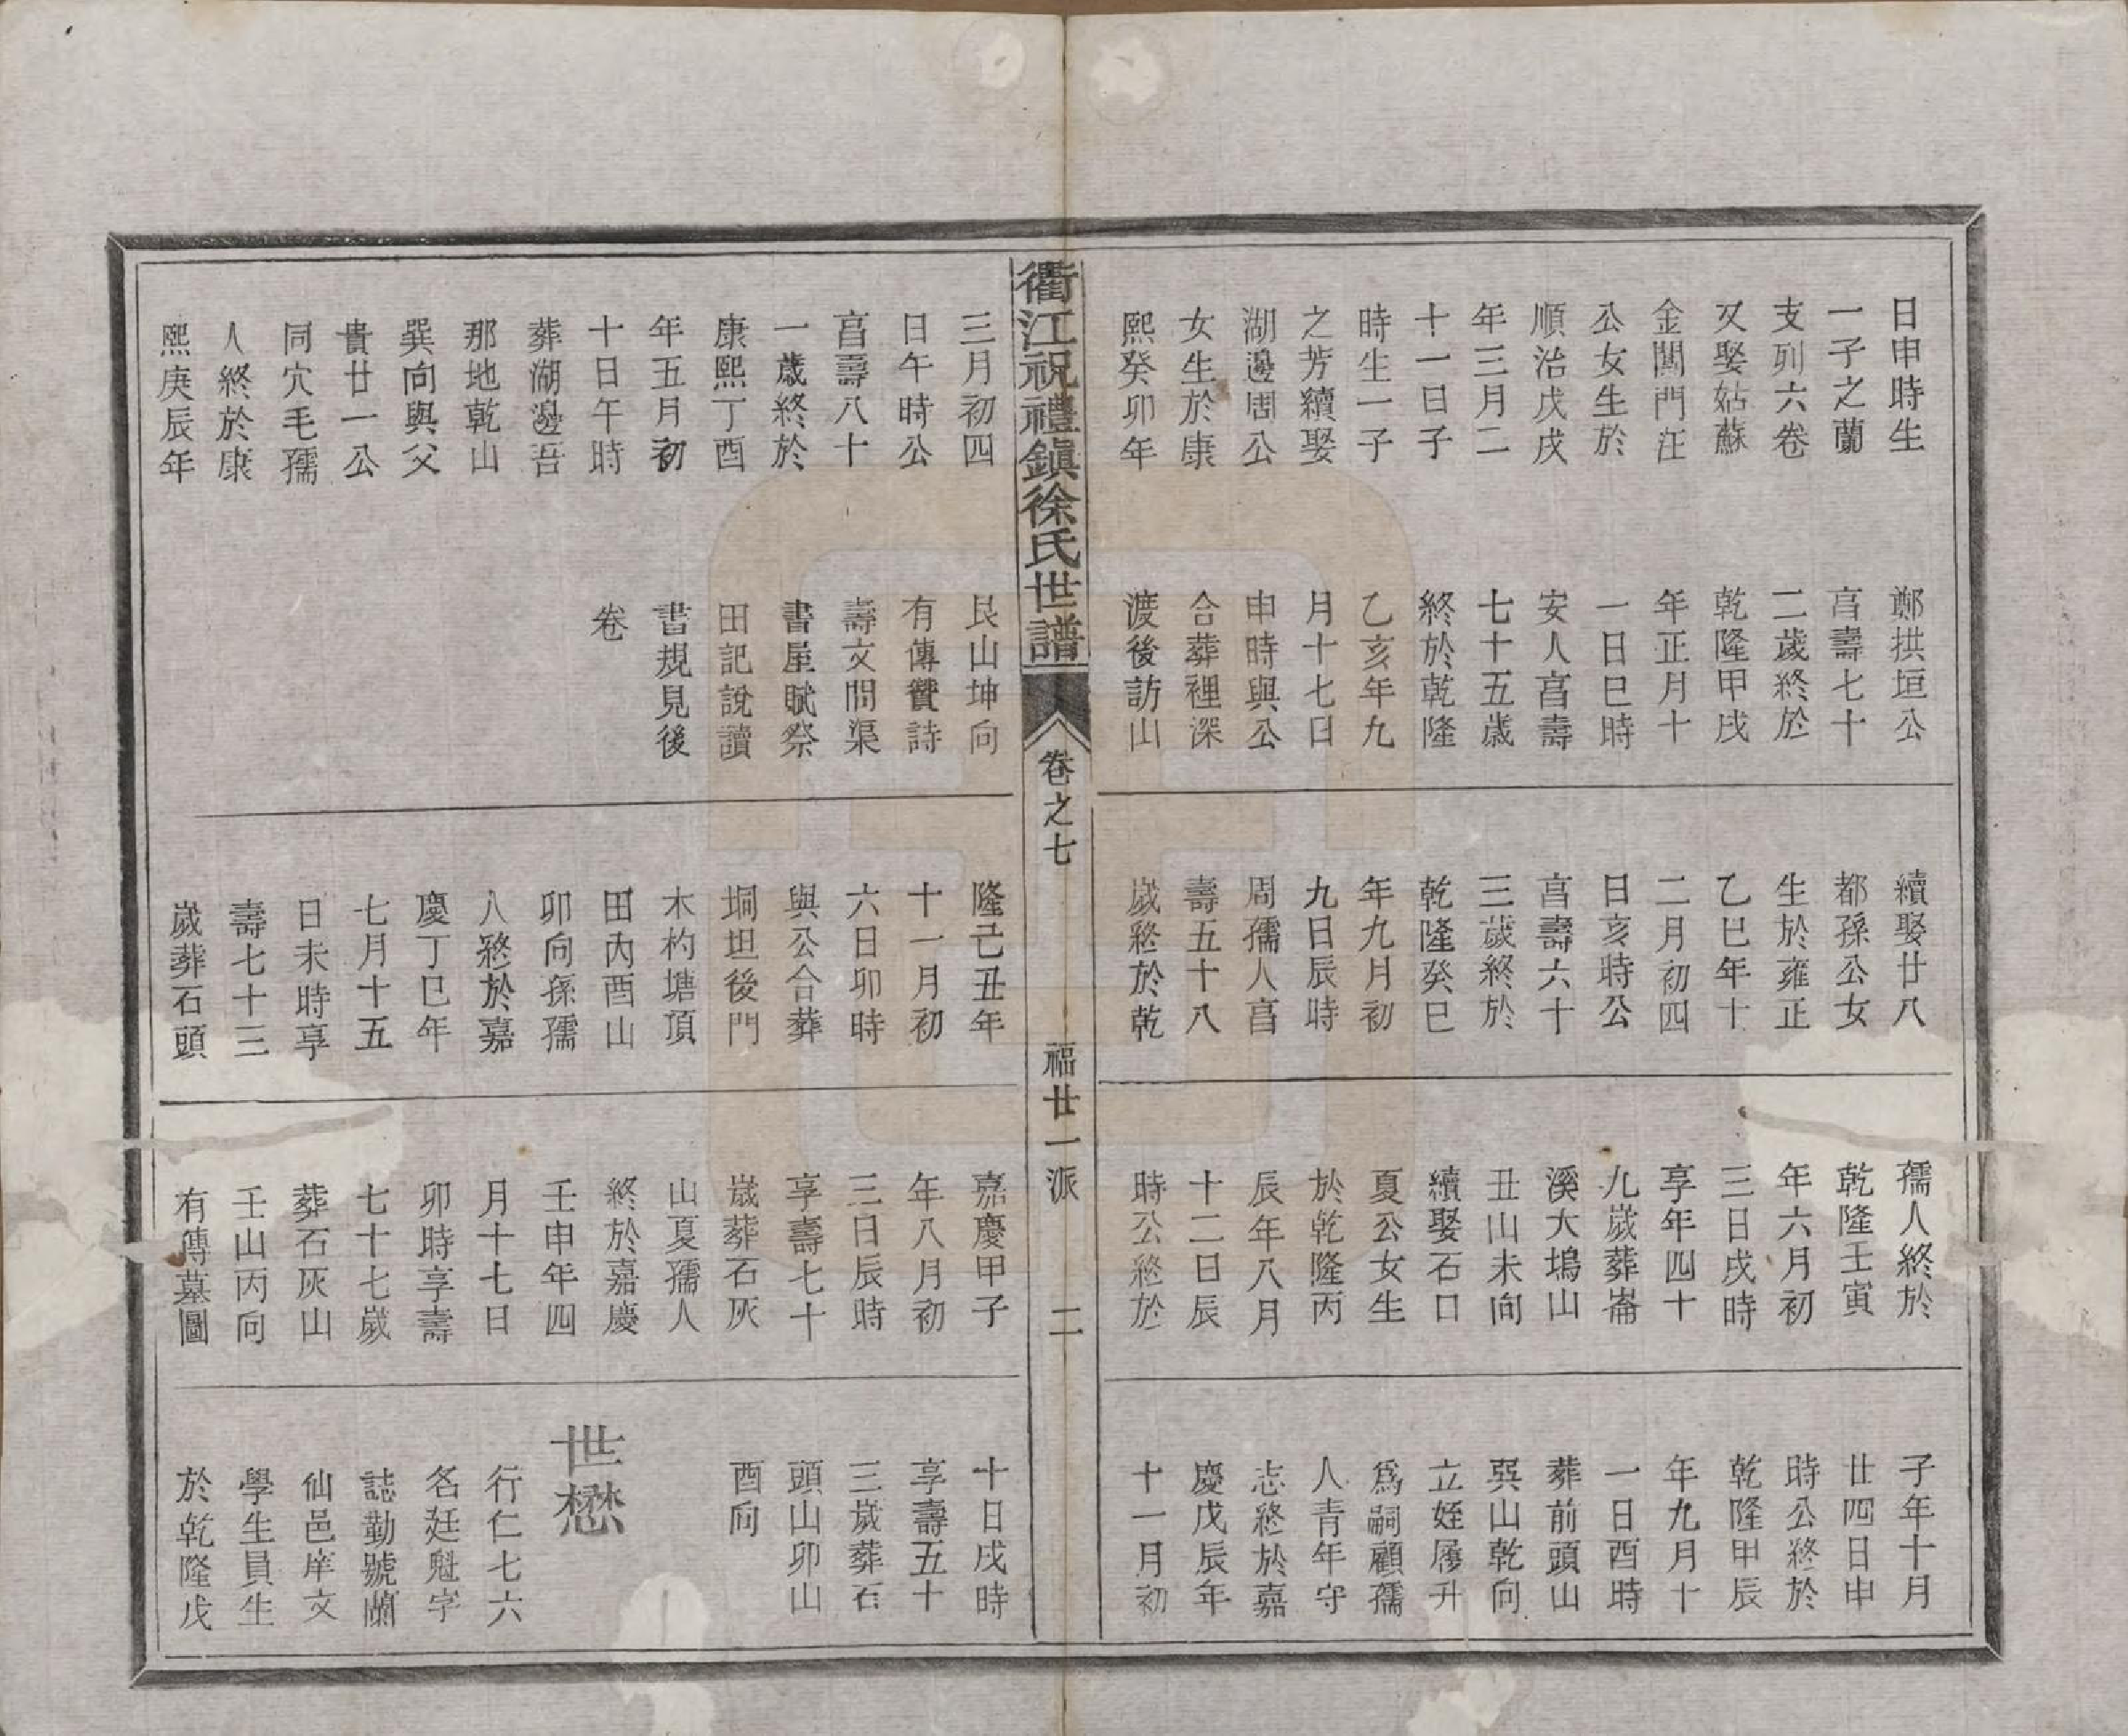 日申時生
一子之蘭
支列六卷
又娶姑蘇
金閶門汪
公女生於
順治戊戌
年三月二
十一日子
時生一子
之芳續娶
湖邊周公
女生於康
熙癸卯年
鄭拱垣公
言壽七十
二歲終於
乾隆甲戌
年正月十
一日巳時
安人言壽
七十五歲
終於乾隆
乙亥年九
月十七日
申時與公
合葬裡深
渡後訪山
續娶廿八
都孫公女
生於雍正
乙巳年十
二月初四
日亥時公
言壽六十
三歲終於
乾隆癸巳
年九月初
九日辰時
周孺人言
壽五十八
歲終於乾
孺人終於
乾隆壬寅
年六月初
三日戌時
享年四十
九歲葬崙
溪大塢山
丑山未向
續娶石口
夏公女生
於乾隆丙
辰年八月
十二日辰
時公終於
子年十月
廿四日申
時公終於
乾隆甲辰
年九月十
一日酉時
葬前頭山
巽山乾向
立姪履升
爲嗣顧孺
人青年守
志終於嘉
慶戊辰年
十一月初
衢江祝禮鎮徐氏世譜
卷之七
福廿一派
二
三月初四
日午時公
言壽八十
一歲終於
康熙丁酉
年五月初
十日午時
葬湖邊吾
那地乾山
巽向與父
貴廿一公
同穴毛孺
人終於康
熙庚辰年
艮山坤向
有傳贊詩
壽文問渠
書屋賦祭
田記說讀
書規見後
卷
隆己丑年
十一月初
六日卯時
與公合葬
垌坦後門
木杓塘頂
田內酉山
卯向孫孺
人終於嘉
慶丁巳年
七月十五
日未時享
壽七十三
歲葬石頭
嘉慶甲子
年八月初
三日辰時
享壽七十
歲葬石灰
山夏孺人
終於嘉慶
壬申年四
月十七日
卯時享壽
七十七歲
葬石灰山
壬山丙向
有傳墓圖
十日戌時
享壽五十
三歲葬石
頭山卯山
酉向
世懋
行仁七六
名廷魁字
誌勤號蘭
仙邑庠文
學生員生
於乾隆戊